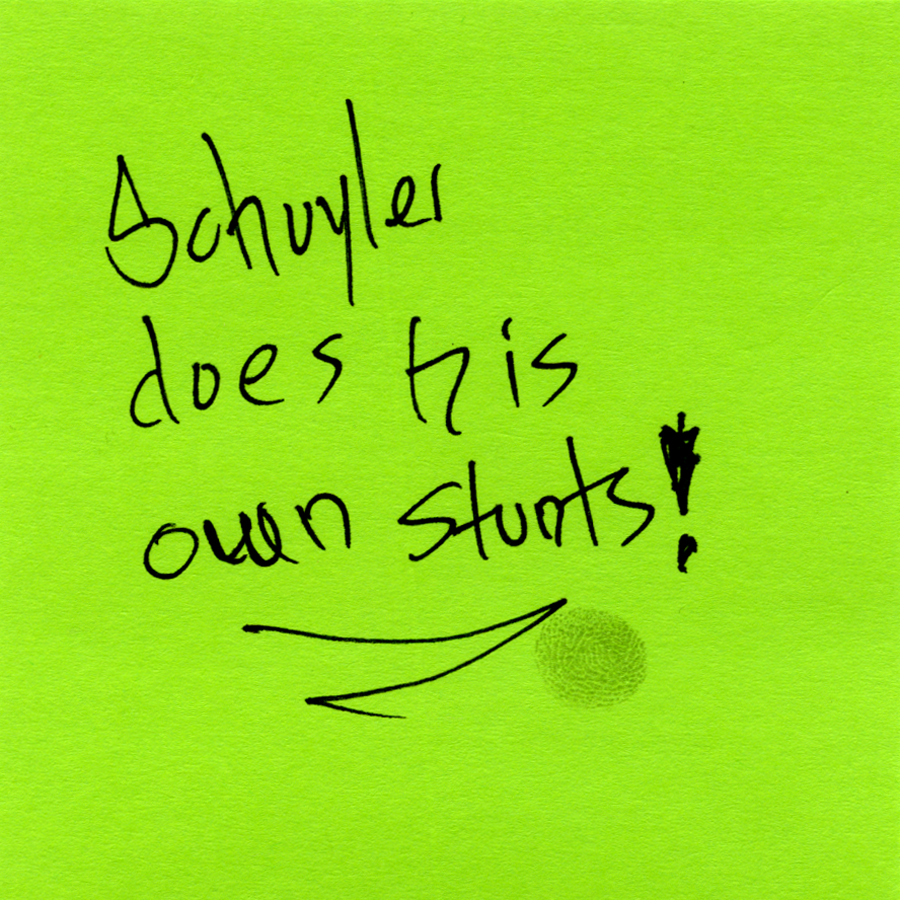 Schuyler
does his
own stunts!